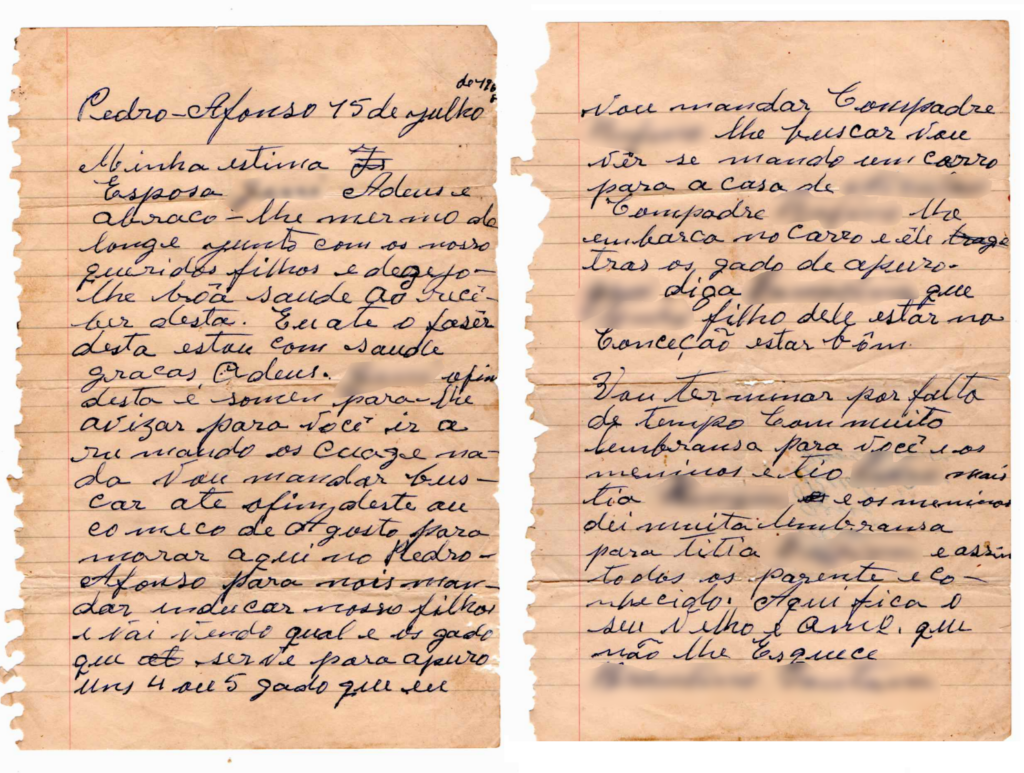 de 196
Pedro-Afonso 15 de julho
Minha estima
Esposa Adeus e
abraco-lhe mermo de
longe junto com os nosso
queridos filhos e degejo-
lhe bôa saude ao ricê-
ber desta. Eu ate o fasêr
desta estou com saude
gracas, Adeus. ofin
desta é somen para-lhe
avizar para você ir a
ru mando os cuage na-
da Vou mandar bus-
car ate ofim deste au
co meco de Agosto para
morar aqui no Pedro-
Afonso para nois man-
dar inducar nosso filhos
e vai vendo qual e os gado
que serve para apuro
uns 4 ou 5 gado que eu
Vou mandar Compadre
lhe buscar vou
vêr se mando um carro
para a casa de
Compadre lhe
embarca no carro e êle trage
tras os, gado de apuro.
diga que
filho dele estar na
Conceção estar bôm.
Vou terminar por falta
de tempo Com muito
lembransa para você e os
meninos e tio mais
tia e os meninos
dei muita lembransa
para titia e assin
todos os parente e co-
nhecido. Aqui fica o
seu velho e que
não lhe Esquece